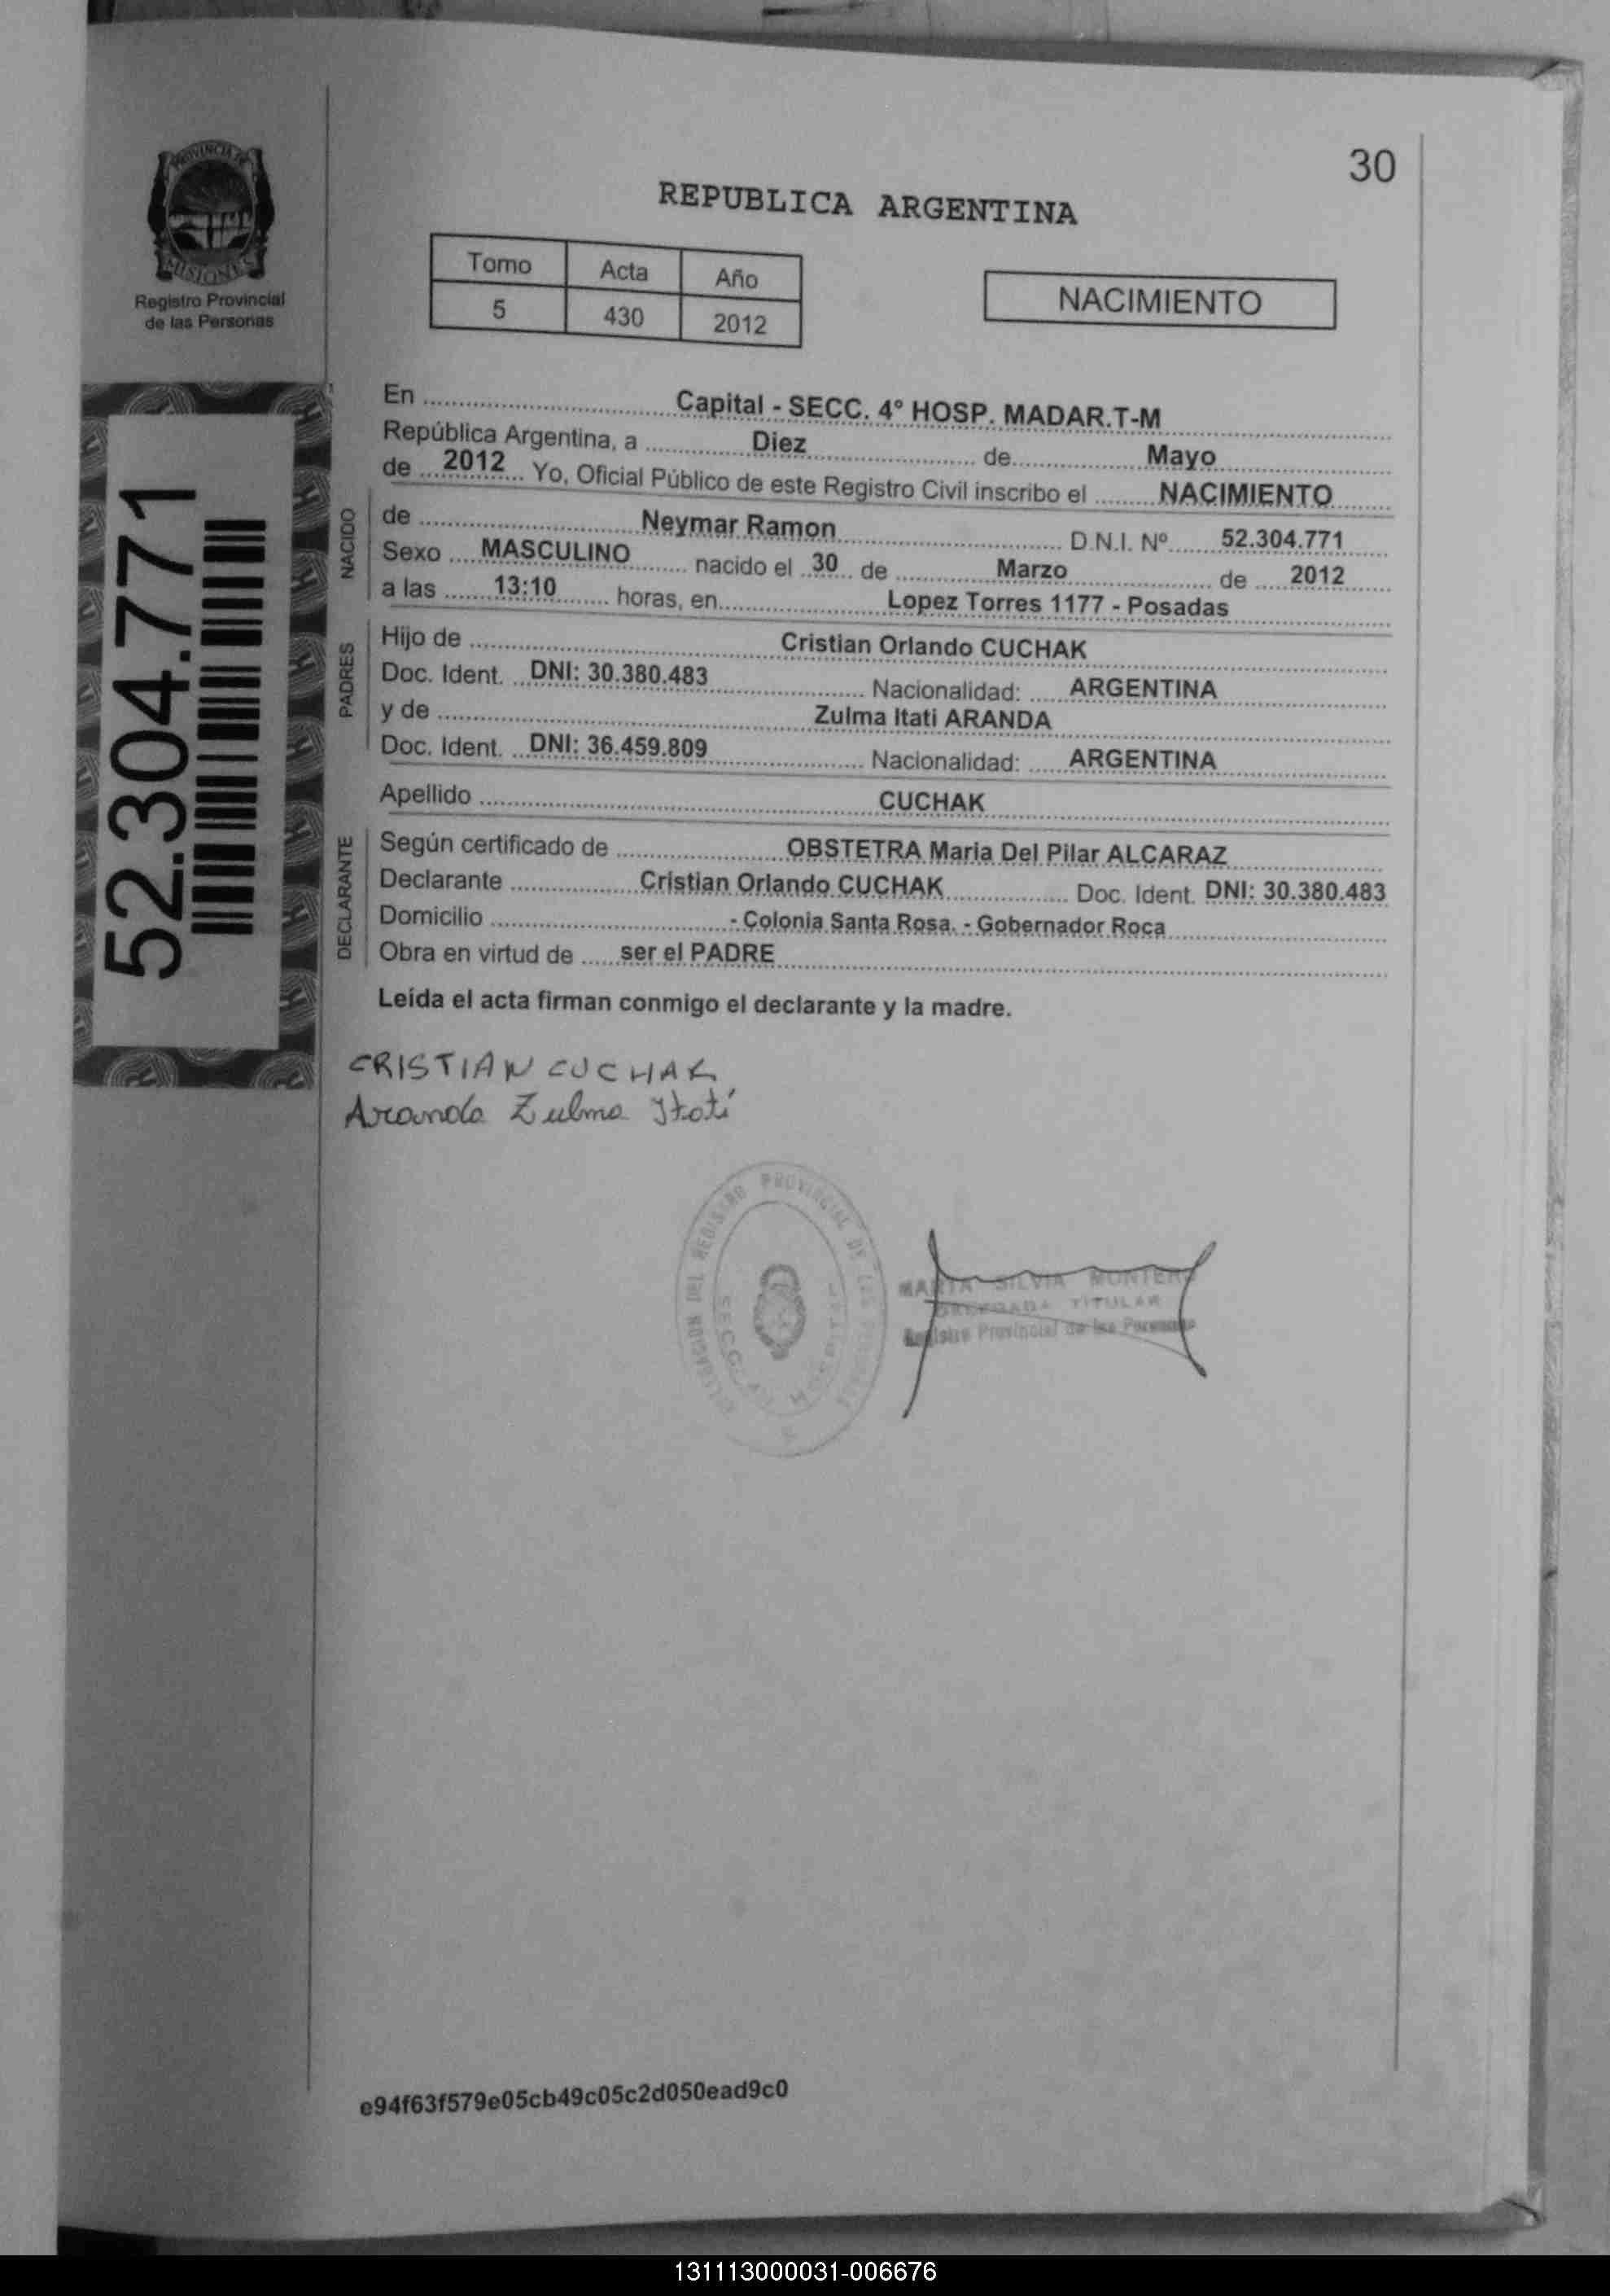 30
PROVINCIA DE
MISIONES
Registro Provincial
de las Personas
REPUBLICA ARGENTINA
Tomo Acta Año
5 430 2012
NACIMIENTO
52.304.771
En Capital - SECC. 4° HOSP. MADAR.T-M
República Argentina, a Diez de Mayo
de 2012 Yo, Oficial Público de este Registro Civil inscribo el NACIMIENTO
NACIDO
de Neymar Ramon D.N.I. Nº 52.304.771
Sexo MASCULINO nacido el 30 de Marzo de 2012
a las 13:10 horas, en Lopez Torres 1177 - Posadas
PADRES
Hijo de Cristian Orlando CUCHAK
Doc. Ident. DNI: 30.380.483 Nacionalidad: ARGENTINA
y de Zulma Itati ARANDA
Doc. Ident. DNI: 36.459.809 Nacionalidad: ARGENTINA
Apellido CUCHAK
DECLARANTE
Según certificado de OBSTETRA Maria Del Pilar ALCARAZ
Declarante Cristian Orlando CUCHAK Doc. Ident. DNI: 30.380.483
Domicilio - Colonia Santa Rosa. - Gobernador Roca
Obra en virtud de ser el PADRE
Leída el acta firman conmigo el declarante y la madre.
CRISTIAN CUCHAK
Aranda Zulma Itatí
DELEGACION DEL REGISTRO PROVINCIAL DE LAS
MARTA SILVIA MONTERO
DELEGADA TITULAR
Registro Provincial de las Personas
e94f63f579e05cb49c05c2d050ead9c0
131113000031-006676